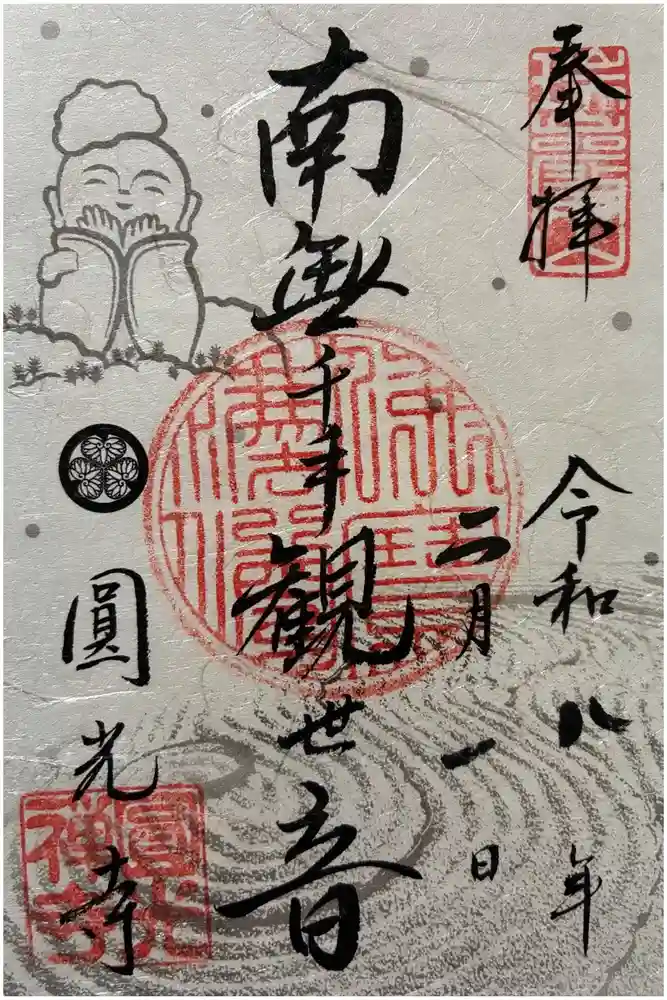 奉拝
令和八年
二月一日
南無千手観世音
圓光寺
圓光
禅寺